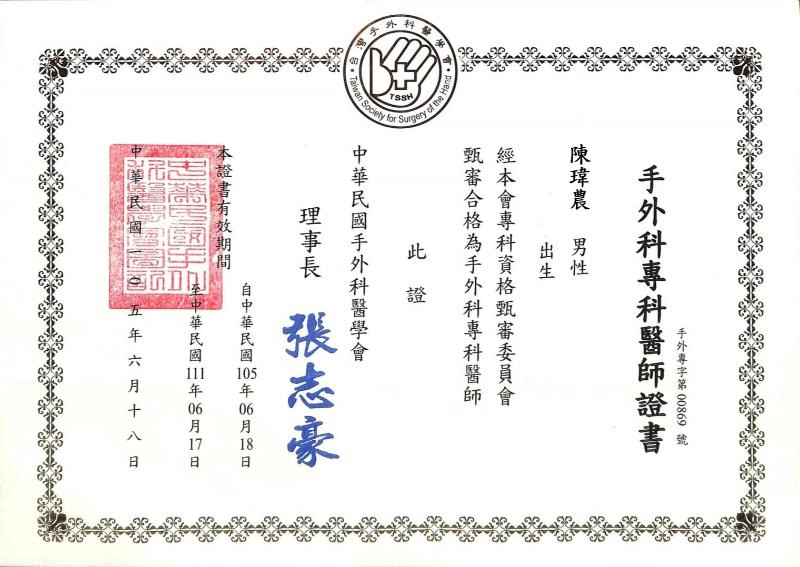 台灣手外科醫學會
TSSH
Taiwan Society for Surgery of the Hand
手外科專科醫師證書
手外專字第00869號
陳瑋農 男性
出生
經本會專科資格甄審委員會
甄審合格為手外科專科醫師
此證
中華民國手外科醫學會
理事長
張志豪
本證書有效期間
自中華民國105年06月18日
至中華民國111年06月17日
中華民國一〇五年六月十八日